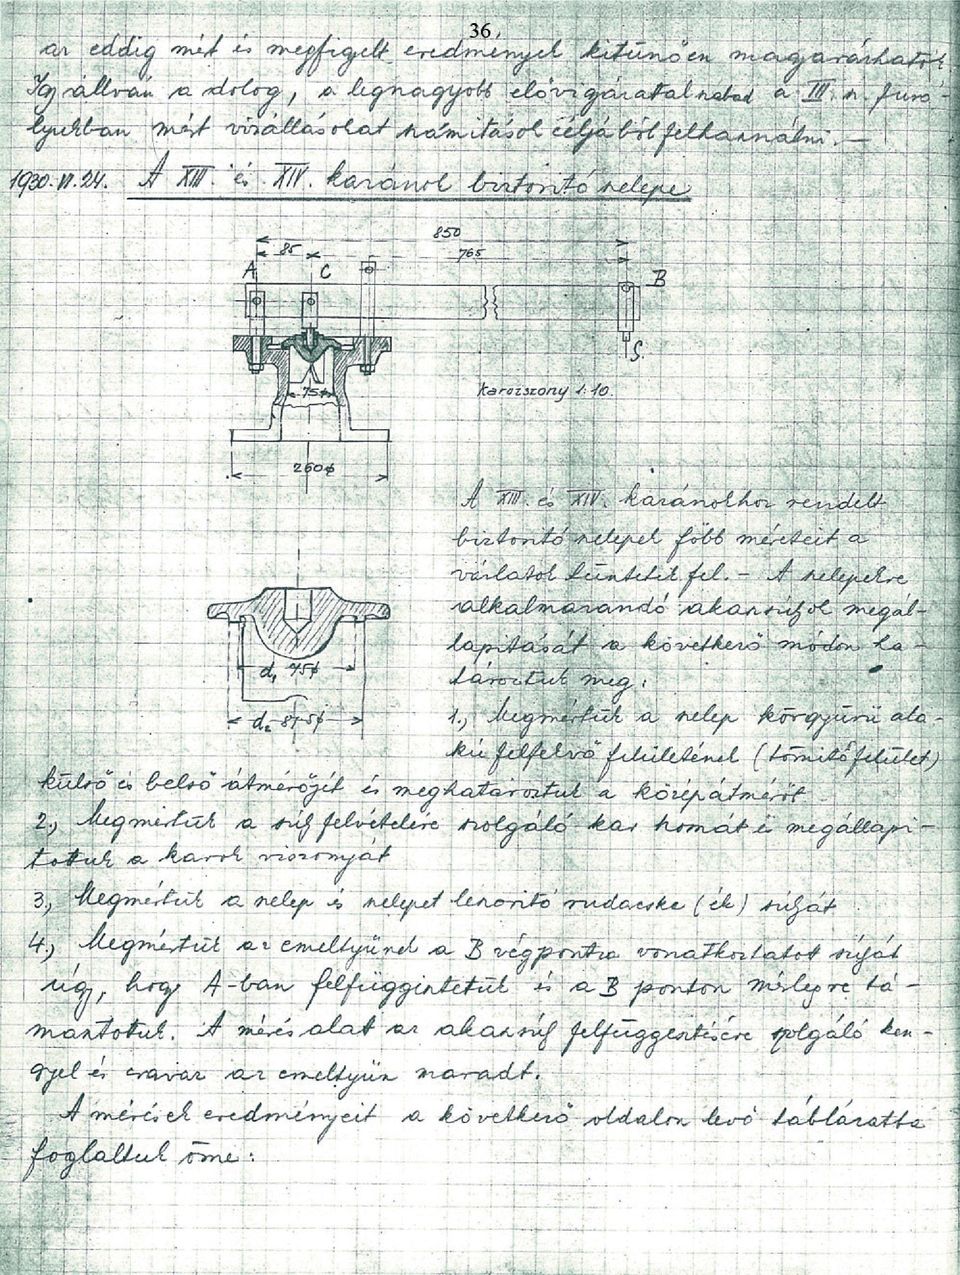 36.
az eddig mért és megfigyelt eredmények kitünően magyarázhatók
Igy állván a dolog, a legnagyobb elővigyázattal szabad a III. sz. furó-
lyukban mért vizállásokat számitások céljából felhasználni. —
1930. VI. 24. A XIII. és XIV. kazánok biztositó szelepe
850
85 765
A C B
S.
75φ
Karviszony 1:10.
260φ
A XIII. és XIV. kazánokhoz rendelt
biztositó szelepek főbb méreteit a
vázlatok tüntetik fel. – A szelepekre
alkalmazandó akasztósúlyok megál-
lapitását a következő módon ha-
tároztuk meg:
1., Megmértük a szelep körgyürü ala-
kú felfekvő felületének (tömitőfelület)
d₁ 75φ
d₂ 87·5φ
külső és belső átmérőjét és meghatároztuk a középátmérőt
2., Megmértük a súly felvételére szolgáló kar hosszát és megállapi-
tottuk a karok viszonyát
3., Megmértük a szelep és szelepet leszoritó rudacska (ék) súlyát
4., Megmértük az emeltyünek a B végpontra vonatkoztatott súlyát
úgy, hogy A-ban felfüggesztettük és a B ponton mérlegre tá-
masztottuk. A mérés alatt az akasztósúly felfüggesztésére szolgáló ken-
gyel és csavar az emeltyün maradt.
A mérések eredményeit a következő oldalon levő táblázatba
foglaltuk össze: